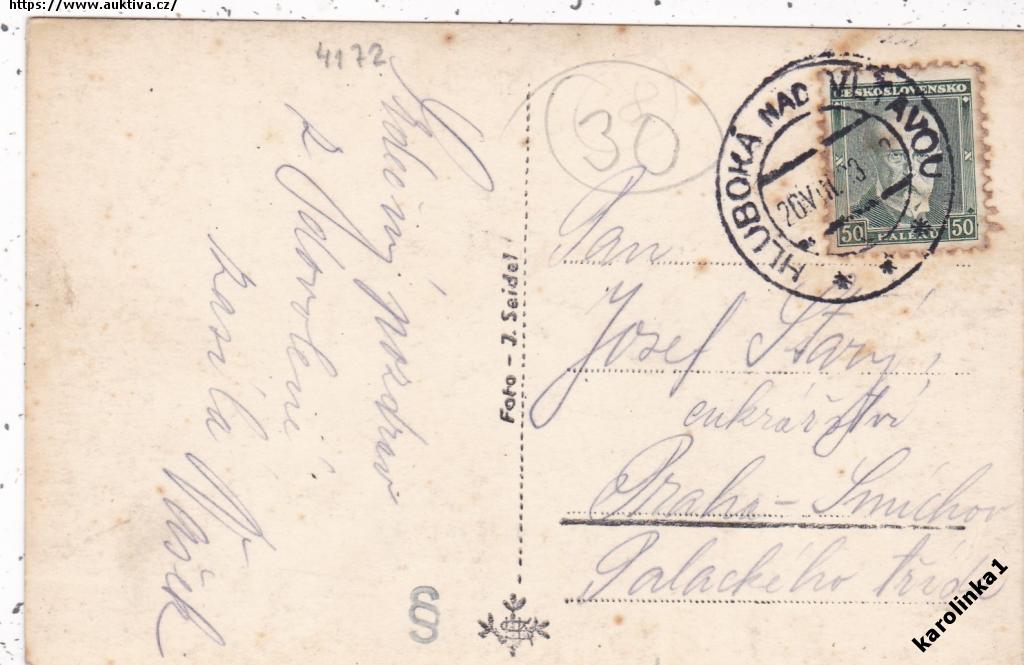 https://www.auktiva.cz/
4172
Srdečný pozdrav
z dovolené
zasílá Vašek
Foto - J. Seidel
30
HLUBOKÁ NAD VLTAVOU
ČESKOSLOVENSKO
50 HALÉŘŮ 50
Pan
Josef Starý,
cukrářství
Praha - Smíchov
Palackého třída
§
karolinka1